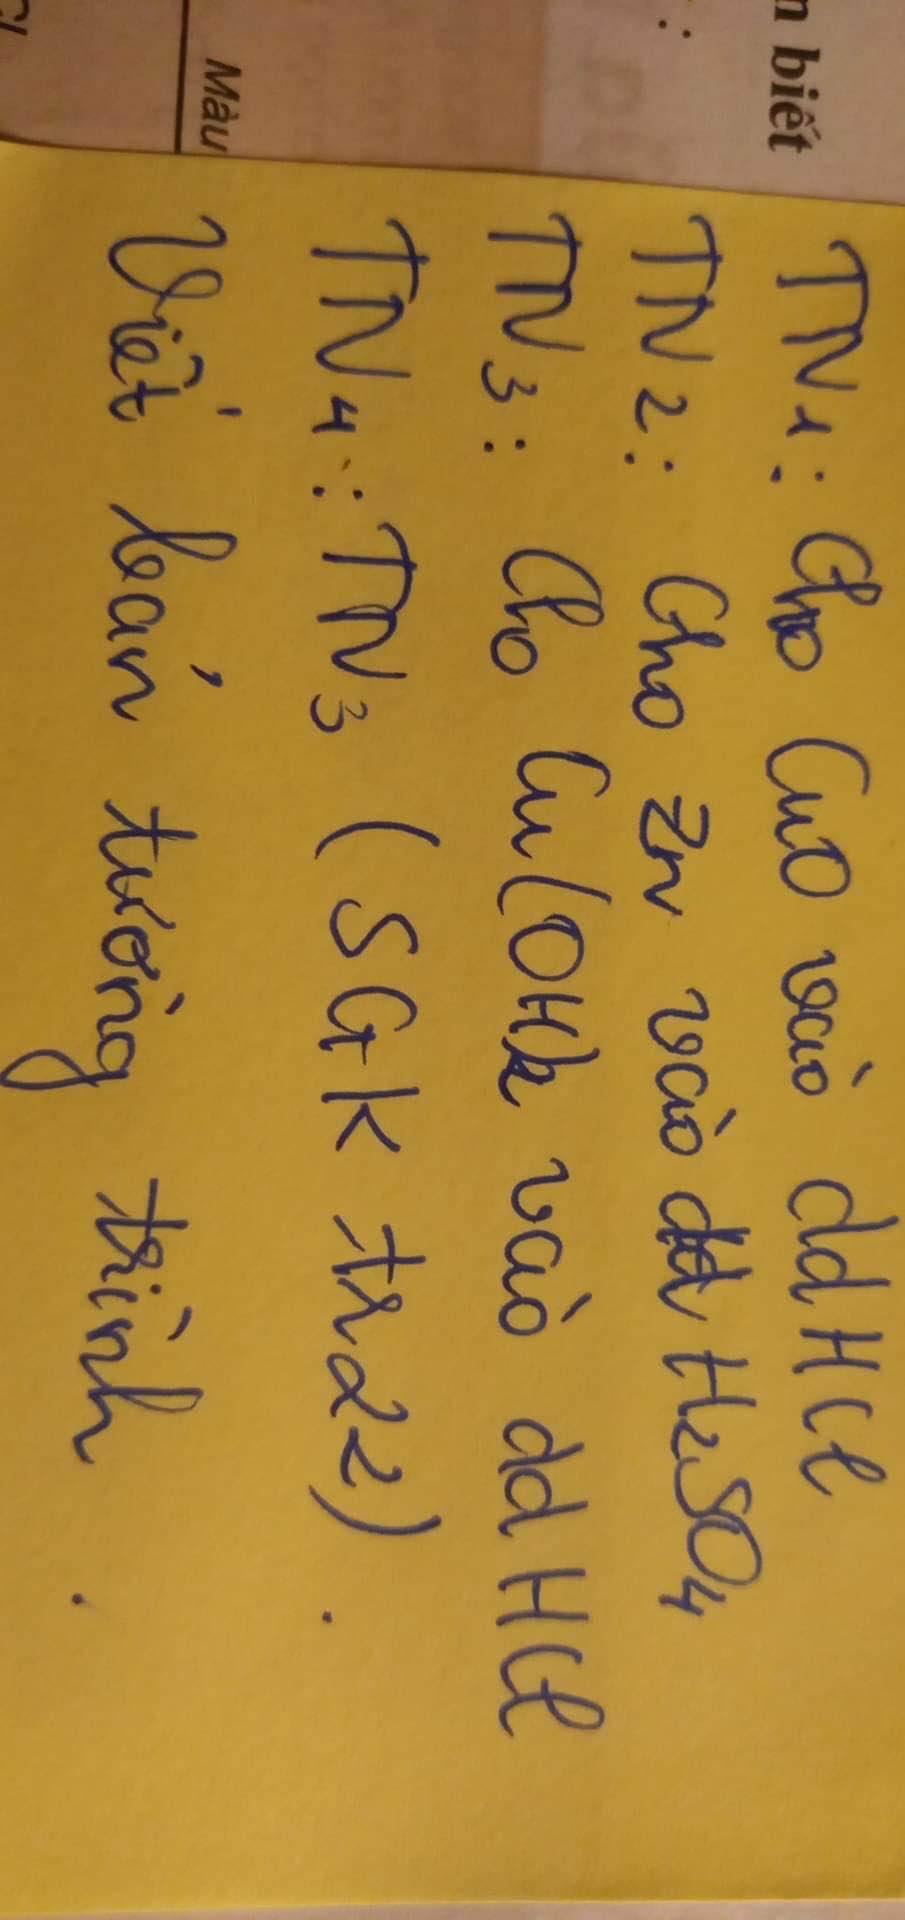 n biết
:
Màu
TN1: Cho CuO vào dd HCl
TN2: Cho Zn vào dd H2SO4
TN3: Cho Cu(OH)2 vào dd HCl
TN4: TN3 (SGK tr22).
Viết bản tường trình.